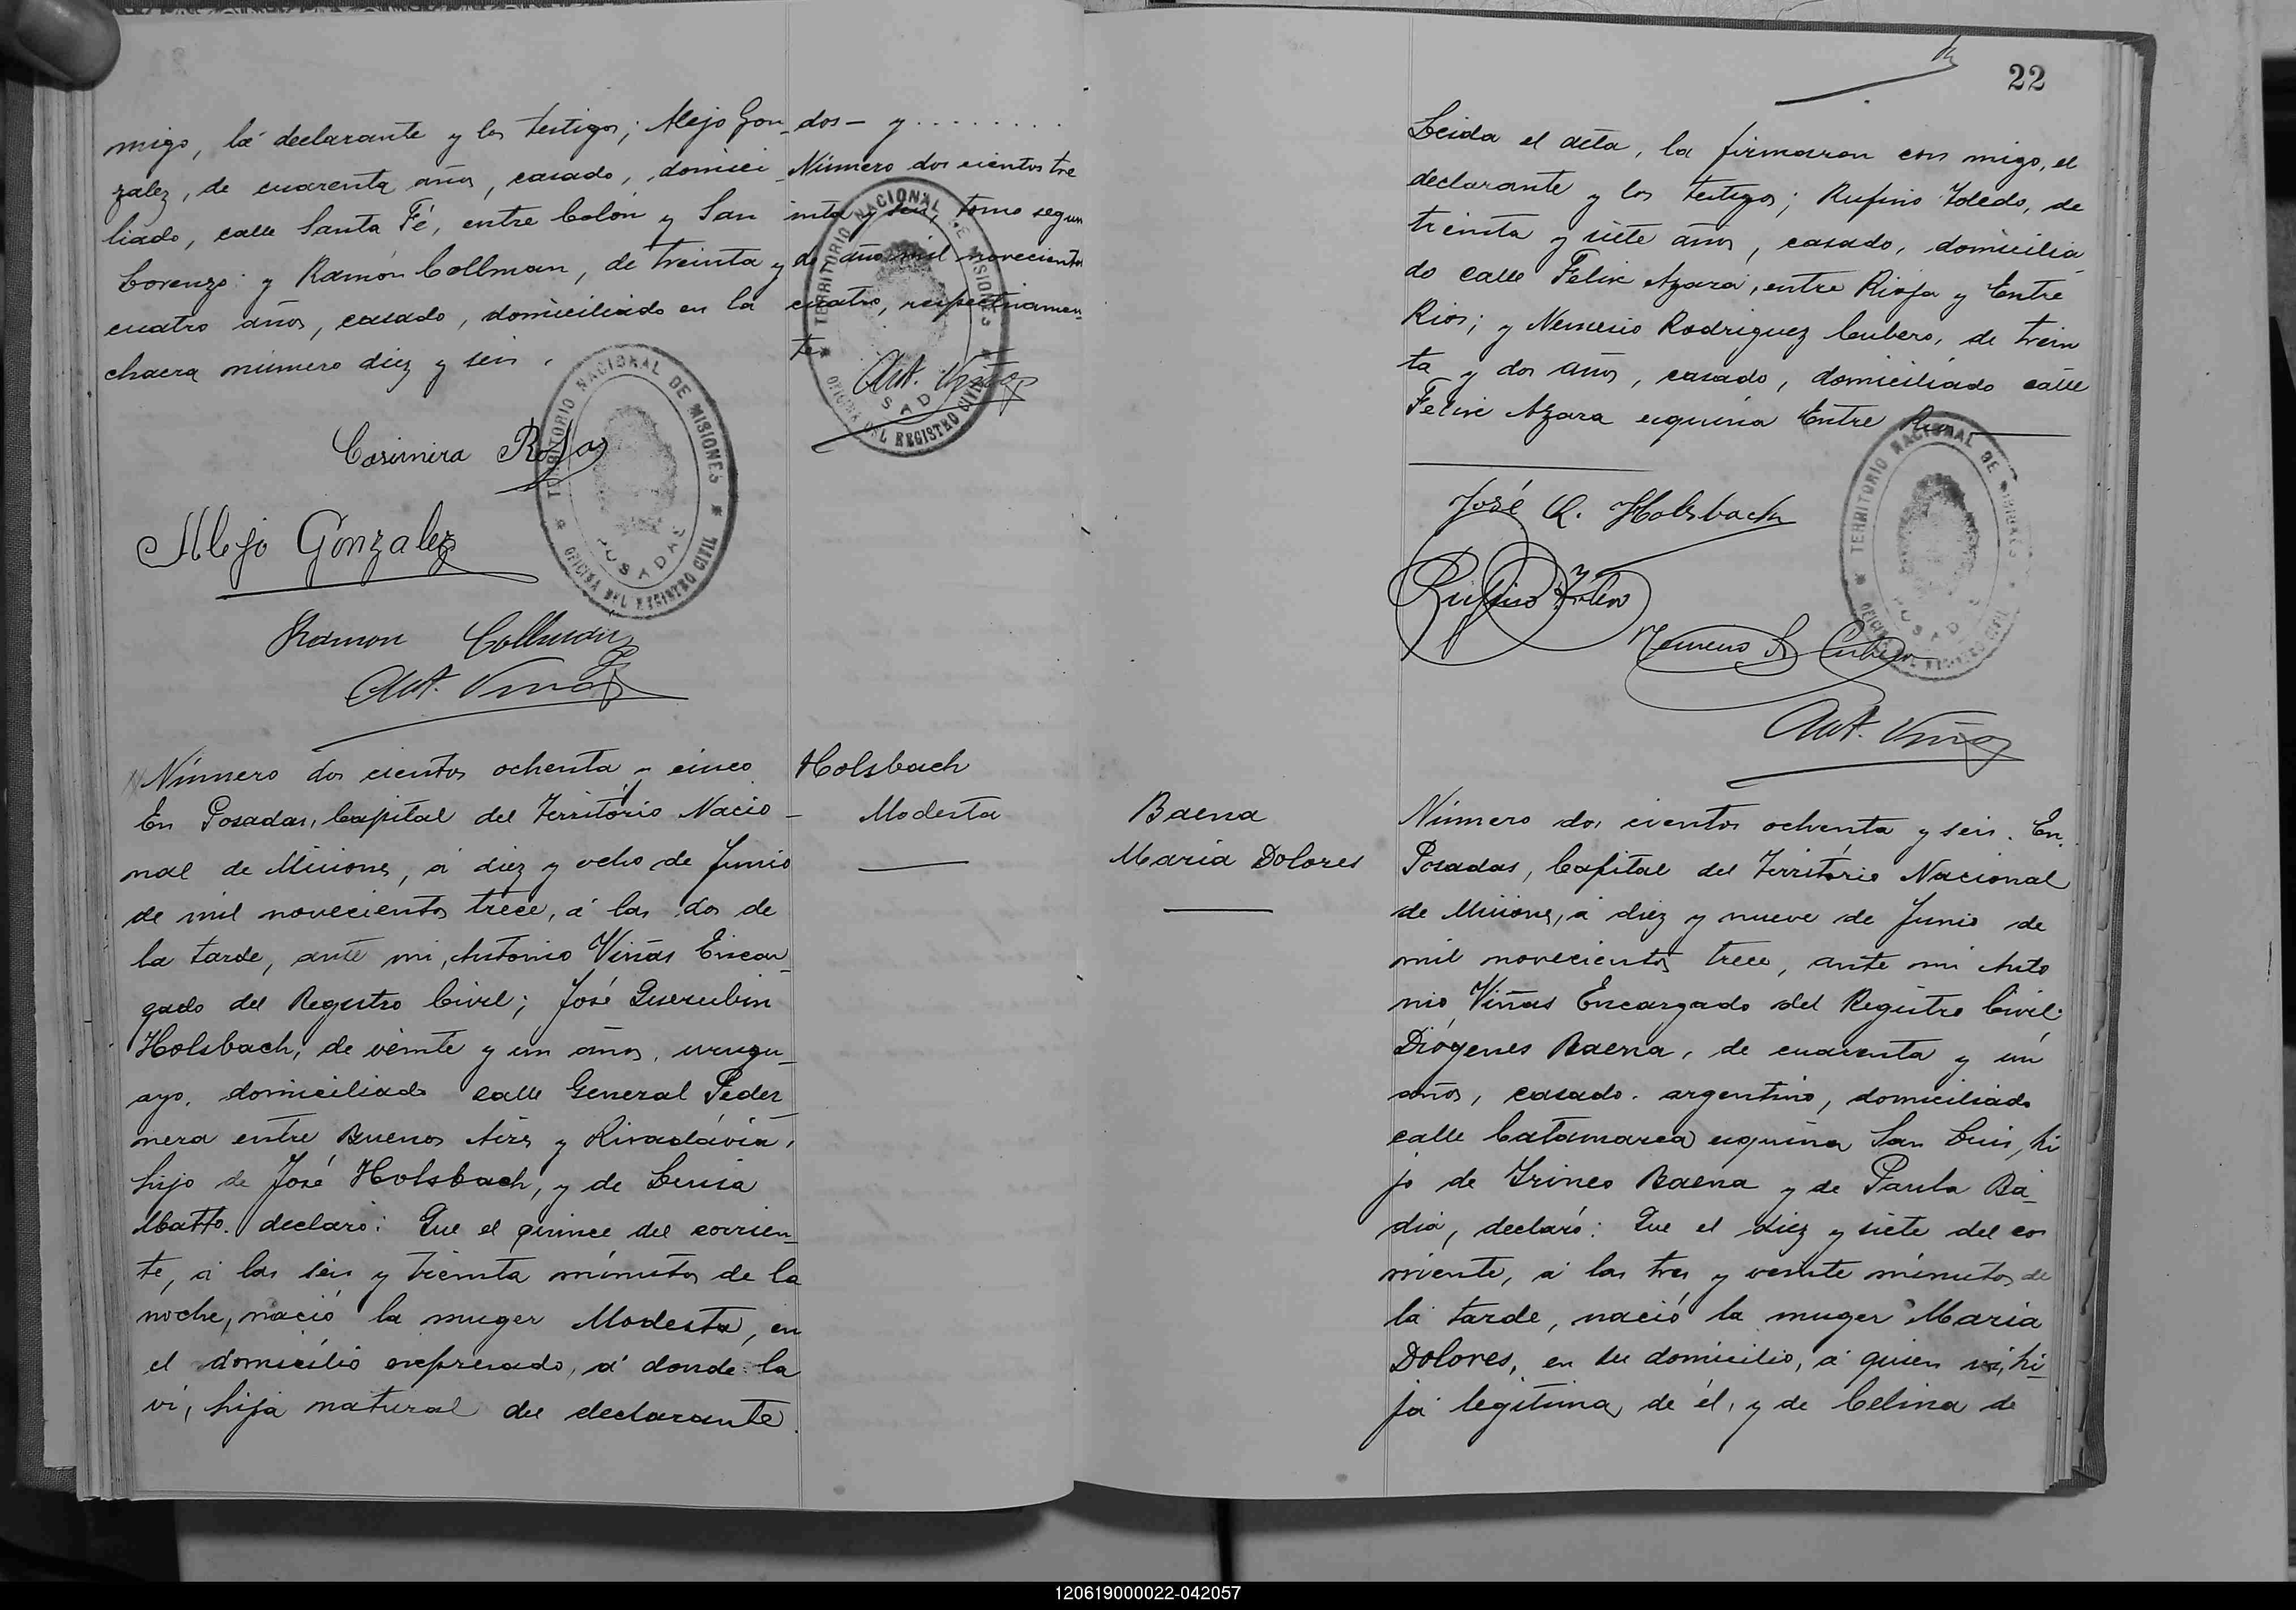 migo, la declarante y los testigos; Alejo Gon-
zalez, de cuarenta años, casado, domici-
liado, calle Santa Fé, entre Colón y San
Lorenzo; y Ramón Collman, de treinta y
cuatro años, casado, domiciliado en la
chacra número diez y seis.
Casimira Rojas
Alejo Gonzalez
Ramon Collman
Ant. Viñas
TERRITORIO NACIONAL DE MISIONES
POSADAS
OFICINA DEL REGISTRO CIVIL
dos - y ........
Número dos cientos tre
inta y seis, tomo segun
do año mil novecientos
cuatro, respectivamen-
te.
Ant. Viñas
TERRITORIO NACIONAL DE MISIONES
POSADAS
OFICINA DEL REGISTRO CIVIL
Número dos cientos ochenta y cinco
En Posadas, Capital del Território Nacio-
nal de Misiones, á diez y ocho de Junio
de mil novecientos trece, á las dos de
la tarde, ante mi, Antonio Viñas Encar-
gado del Registro Civil; José Querubin
Holsbach, de veinte y un años, urugu-
ayo, domiciliado calle General Peder-
nera entre Buenos Aires y Rivadávia,
hijo de José Holsbach, y de Luisa
Matto. declaró: Que el quince del corrien-
te, á las seis y treinta minutos de la
noche, nació la muger Modesta, en
el domicilio expresado, á donde la
vi, hija natural del declarante.
Holsbach
Modesta
22
Leida el acta, la firmaron con migo, el
declarante y los testigos; Rufino Toledo, de
treinta y siete años, casado, domicilia
do calle Felix Azara, entre Rioja y Entre
Rios; y Nemesio Rodriguez Cubero, de trein
ta y dos años, casado, domiciliado calle
Felix Azara esquina Entre Rios
José Q. Holsbach
Rufino Toledo
Nemesio R. Cubero
Ant. Viñas
TERRITORIO NACIONAL DE MISIONES
POSADAS
OFICINA DEL REGISTRO CIVIL
Baena
Maria Dolores
Número dos cientos ochenta y seis. En
Posadas, Capital del Território Nacional
de Misiones, á diez y nueve de Junio de
mil novecientos trece, ante mi Anto
nio Viñas Encargado del Registro Civil;
Diógenes Baena, de cuarenta y un
años, casado. argentino, domiciliado
calle Catamarca esquina San Luis, hi
jo de Irineo Baena y de Paula Ba-
dia, declaró: Que el diez y siete del co
rriente, á las tres y veinte minutos de
la tarde, nació la muger Maria
Dolores, en su domicilio, á quien vi, hi-
ja legitima, de él, y de Celina de